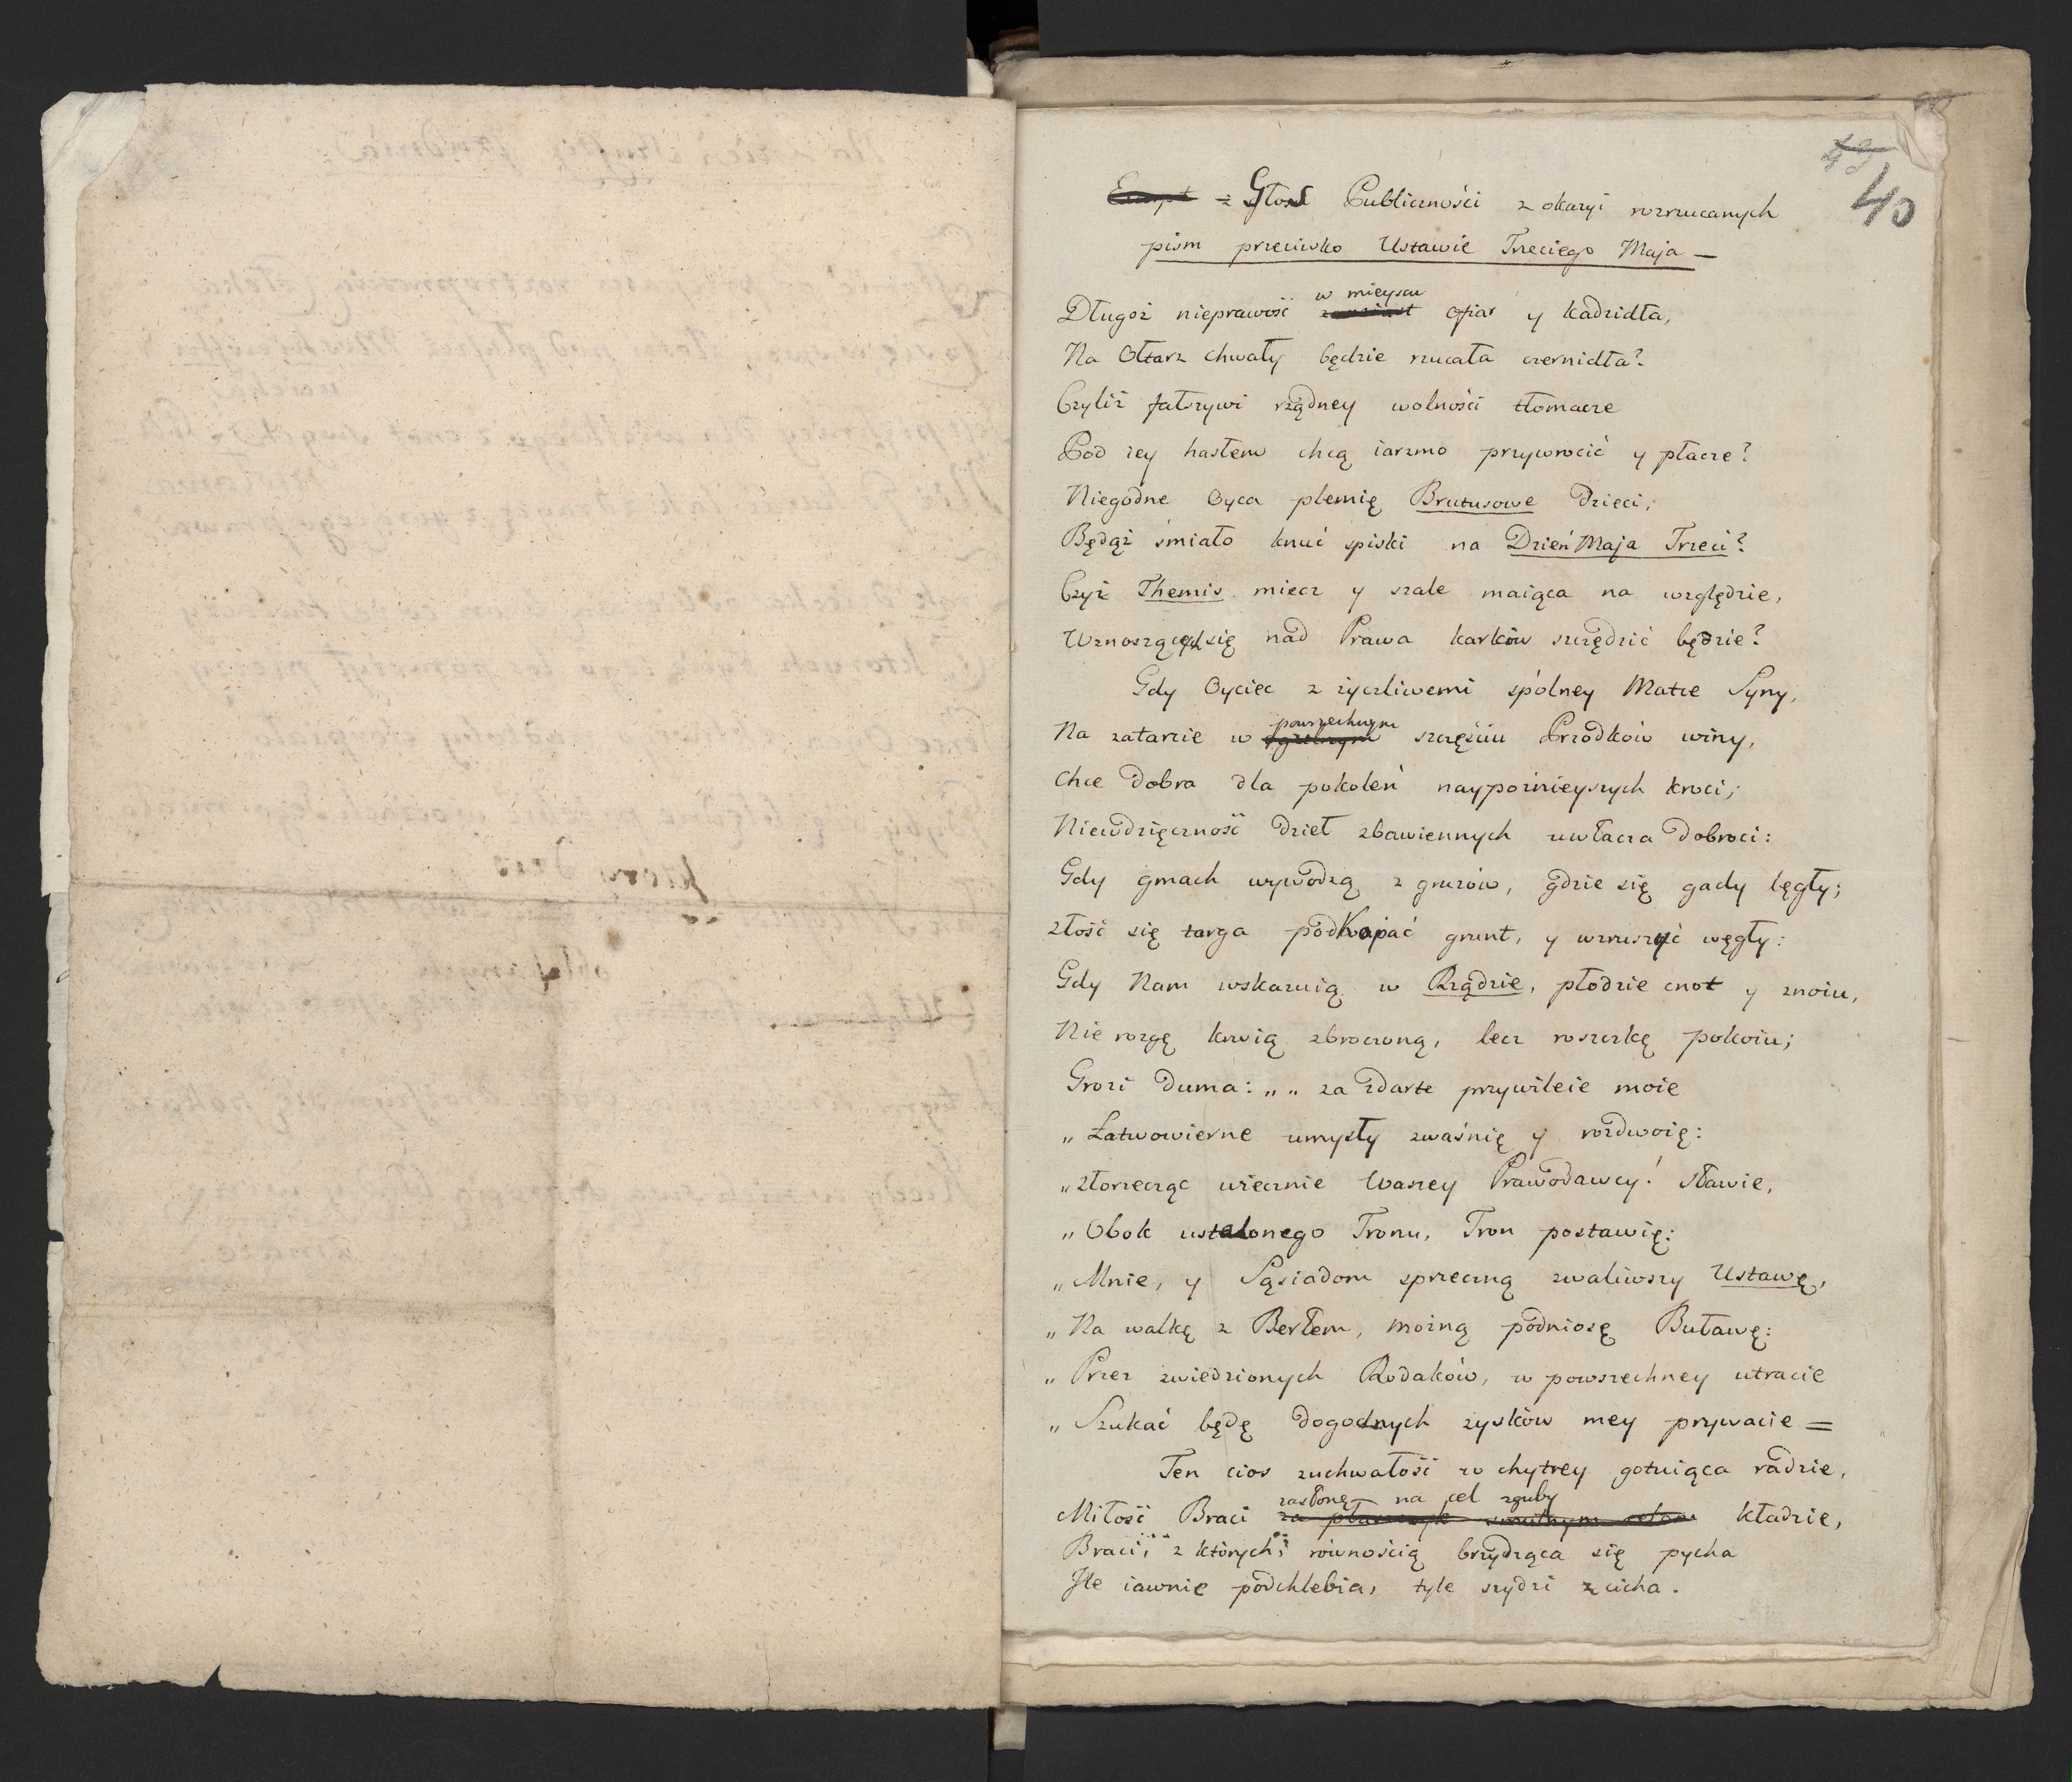 49
40
Głos Publiczności z okazyi rozrzucanych
pism przeciwko Ustawie Trzeciego Maja —
w mieyscu
Długoż nieprawość zamiast ofiar y kadzidła,
Na Ołtarz chwały będzie rzucała czernidła?
Czyliż fałszywi rządney wolności tłomacze
Pod iey hasłem chcą iarzmo przywrocić y płacze?
Niegodne Oyca plemię Brutusowe dzieci;
Będąż śmiało knuć spiski na Dzień Maja Trzeci?
Czyż Themis miecz y szale maiąca na względzie,
Wznoszących się nad Prawa karków szczędzić będzie?
Gdy Oyciec z życzliwemi spólney Matce Syny,
powszechnym
Na zatarcie w szczęściu Przodków winy,
Chce dobra dla pokoleń naypóźnieyszych kroci;
Niewdzięczność dzieł zbawiennych uwłacza dobroci:
Gdy gmach wywodzą z gruzów, gdzie się gady lęgły;
złość się targa podkopać grunt, y wzruszyć węgły:
Gdy Nam wskazuią w Rządzie, płodzie cnot y znoiu,
Nie rozgę krwią zbroczoną, lecz roszczkę pokoiu;
Grozi Duma: „ „ za zdarte przywileie moie
„ Łatwowierne umysły zwaśnię y rozdwoię:
„ złorzecząc wiecznie Waszey Prawodawcy! sławie,
„ Obok ustalonego Tronu, Tron postawię:
„ Mnie, y Sąsiadom sprzeczną zwaliwszy Ustawę,
„ Na walkę z Berłem, moźną podniosę Buławę:
„ Przez zwiedzionych Rodaków, w powszechney utracie
„ Szukać będę dogodnych zysków mey prywacie =
Ten cios zuchwałość w chytrey gotuiąca radzie,
zasłonę na cel zguby
Miłość Braci za płaszczyk smutnym celom kładzie,
Braci, z których równością brzydząca się pycha
Ile iawnie podchlebia, tyle szydzi z cicha.